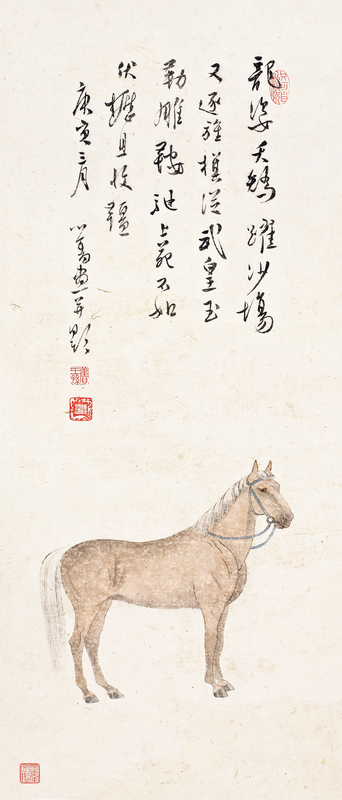 龍姿夭矯躍沙場
又逐旌旗從武皇玉
勒雕鞍馳上苑不如
伏櫪且收韁
庚寅三月 心畬畫并題